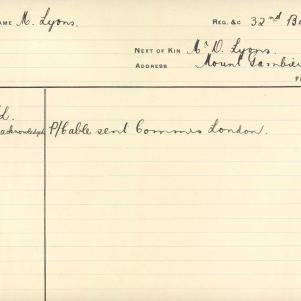 AME M. Lyons. REG. &C 32nd Ba
NEXT OF KIN Mr D. Lyons.
ADDRESS Mount Gambier
F
L.
acknowledged P/Cable sent Commis London.